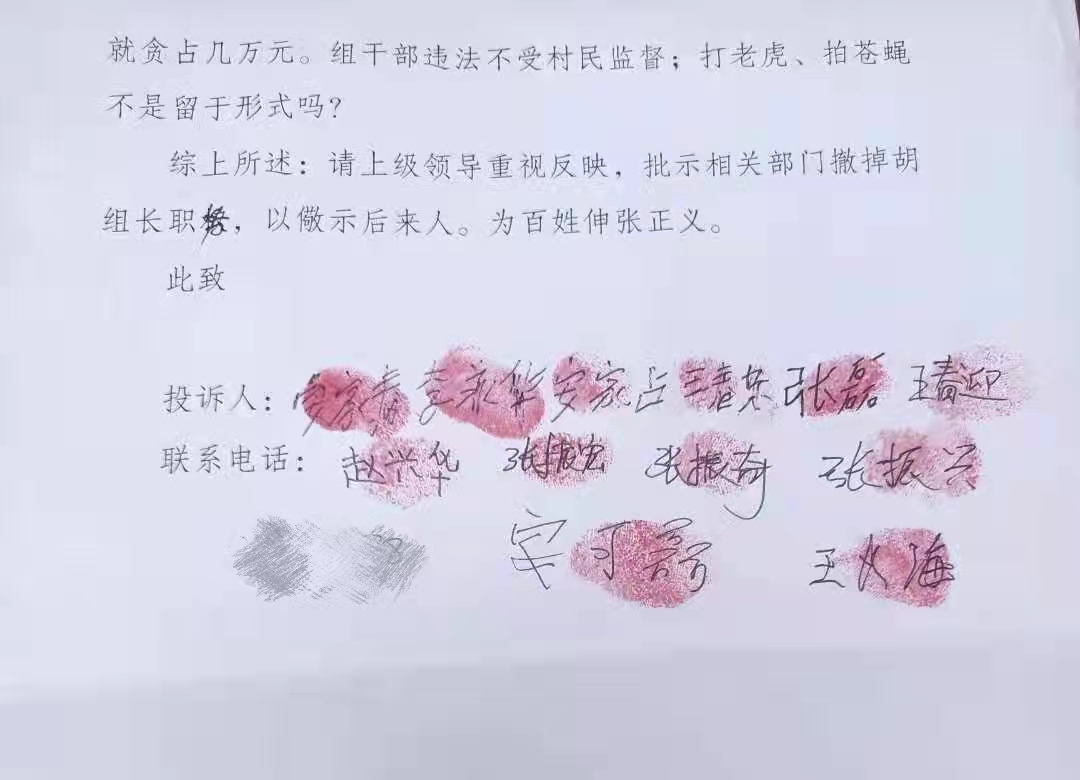 就贪占几万元。组干部违法不受村民监督；打老虎、拍苍蝇
不是留于形式吗？
综上所述：请上级领导重视反映，批示相关部门撤掉胡
组长职务，以儆示后来人。为百姓伸张正义。
此致
投诉人： 李永华 安家占 张磊 王春迎
联系电话： 赵兴华 张振宏 张振奇 张振兴